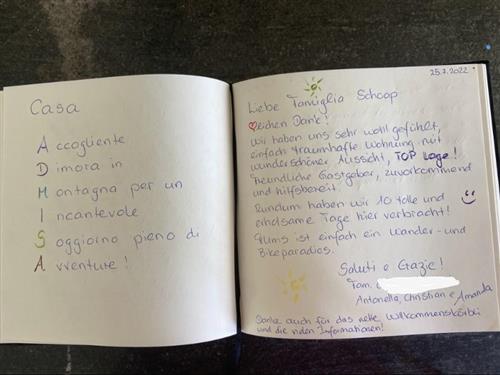 Casa
Accogliente
Dimora in
Montagna per un
Incantevole
Soggiorno pieno di
Avventure!
25.7.2022
Liebe Famiglia Schoop
Herzlichen Dank!
Wir haben uns sehr wohl gefühlt,
einfach traumhafte Wohnung mit
wunderschöner Aussicht, TOP Lage!
Freundliche Gastgeber, zuvorkommend
und hilfsbereit.
Rundum haben wir 10 tolle und
erholsame Tage hier verbracht!
Flums ist einfach ein Wander- und
Bikeparadies.
Saluti e Grazie!
Fam.
Antonella, Christian e Amanda
Danke auch für das nette Willkommenskörbli
und die vielen Informationen!